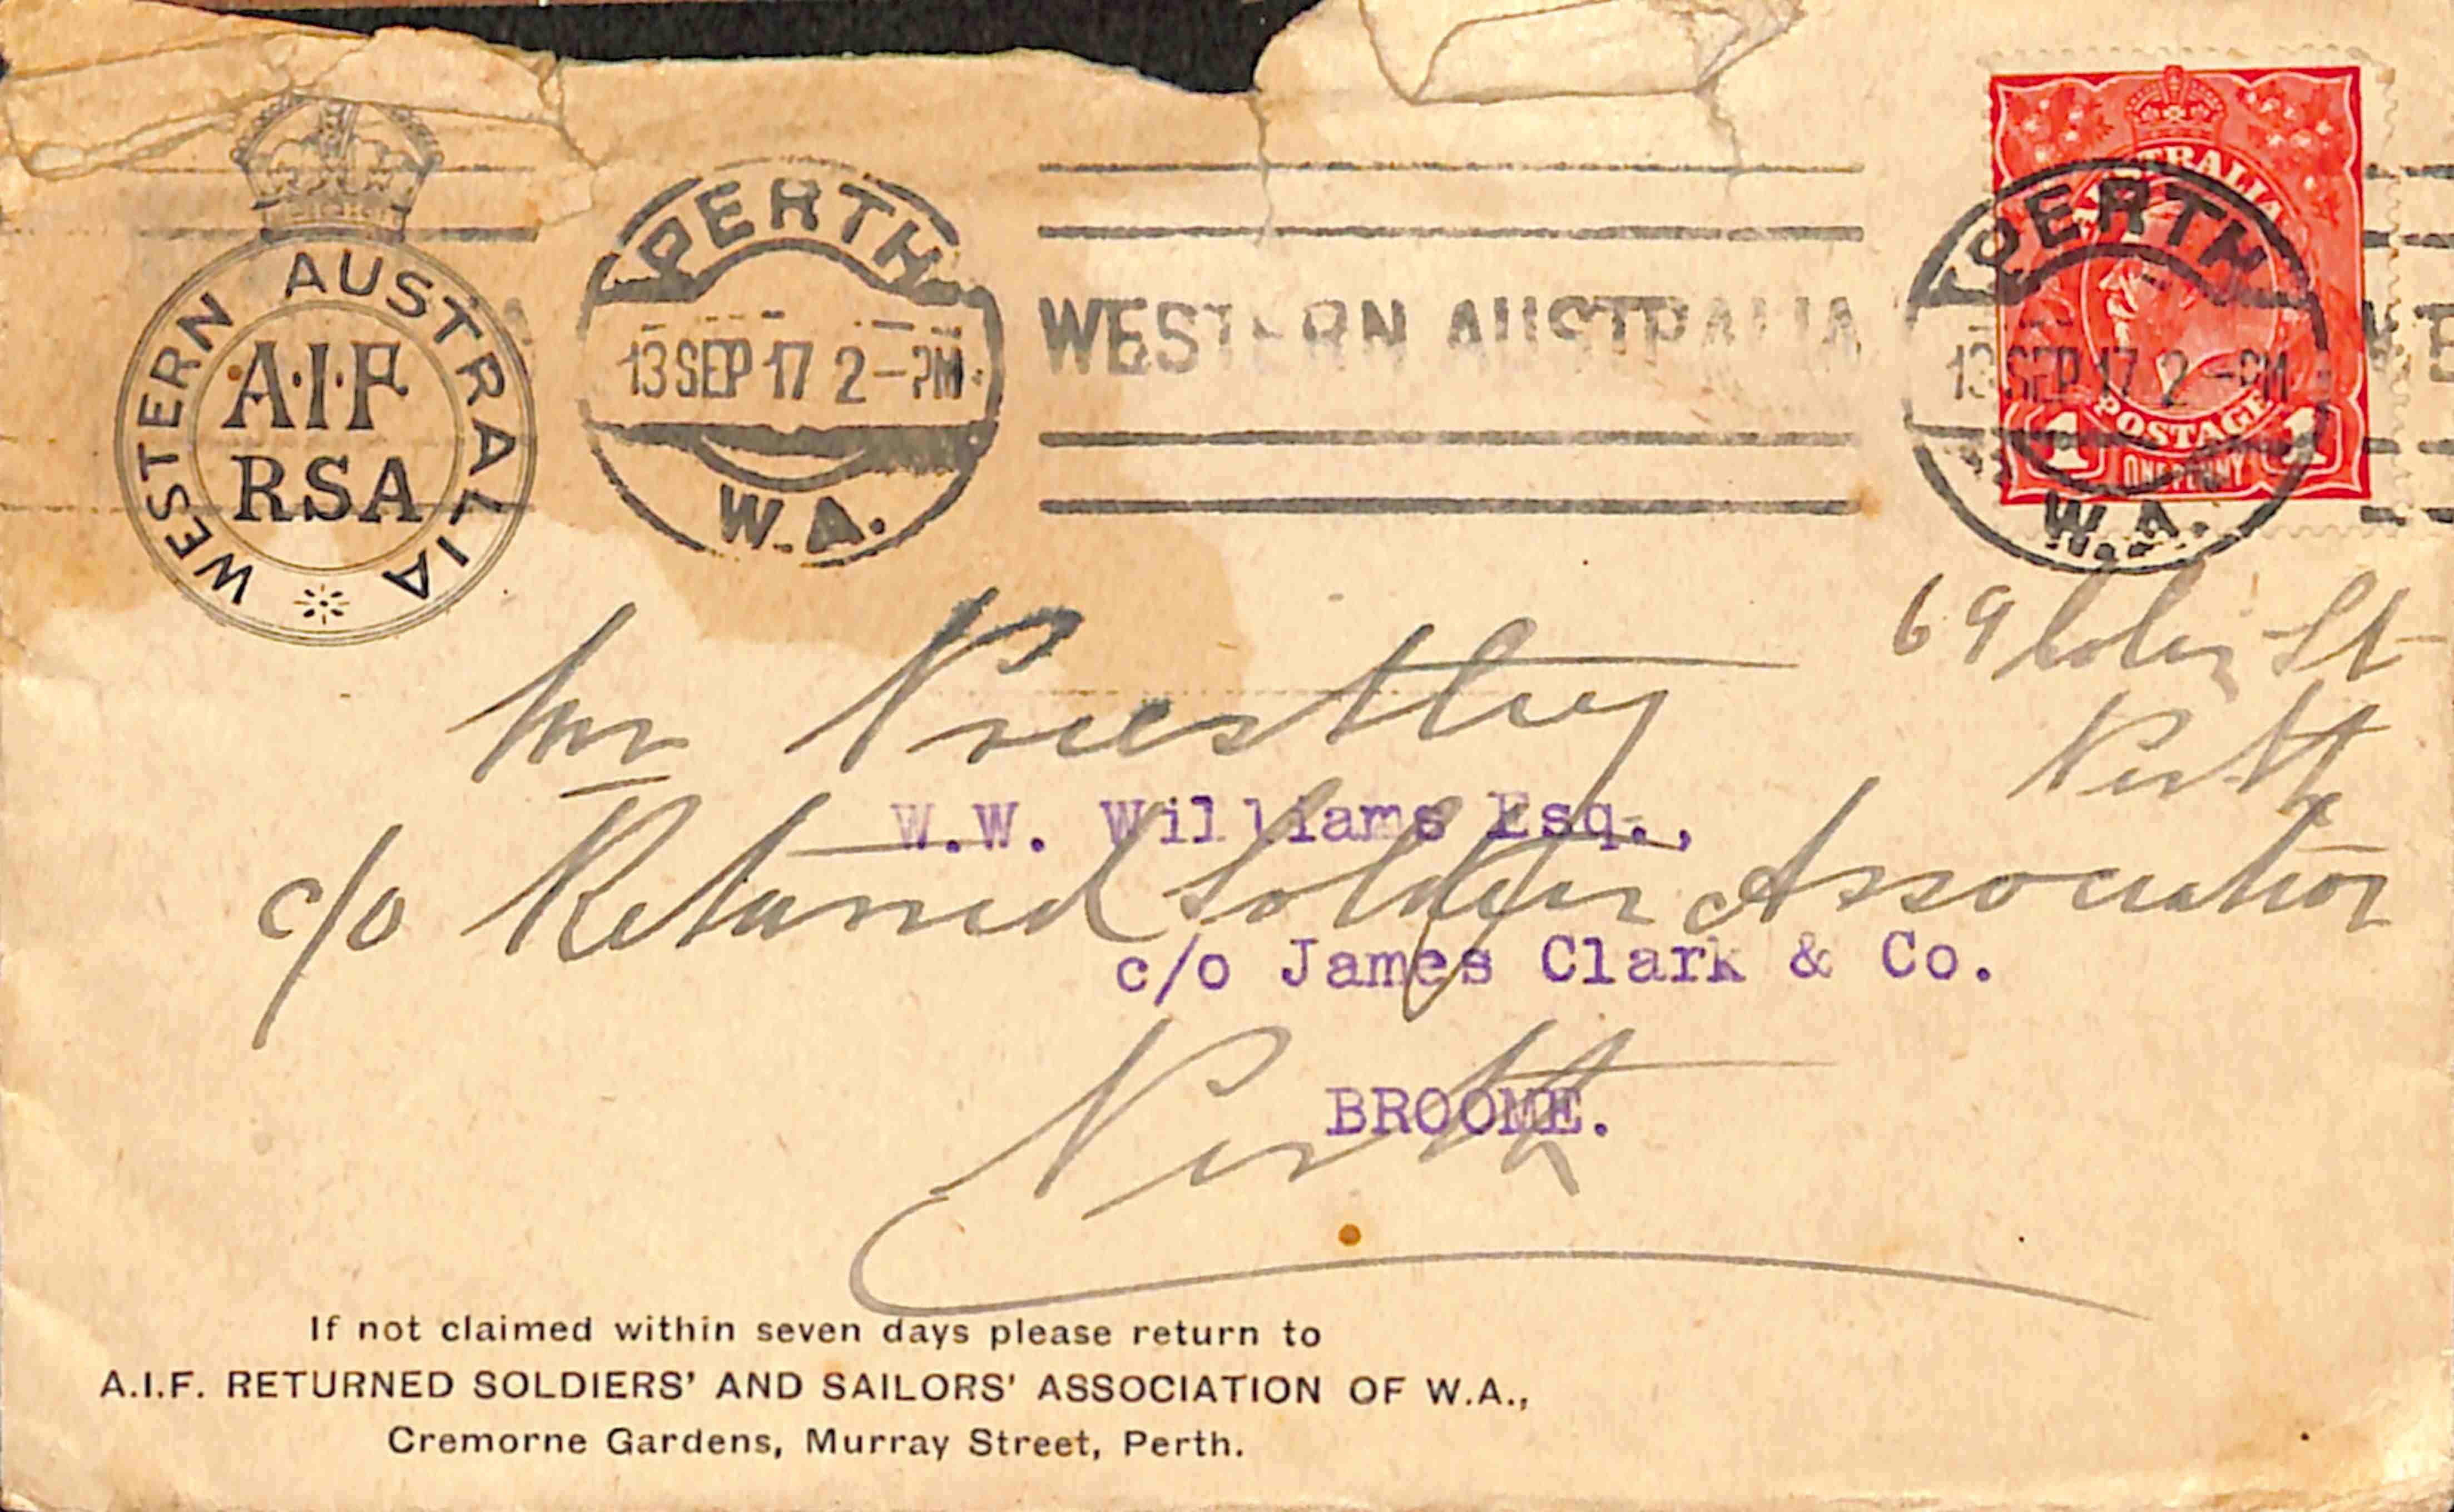 WESTERN AUSTRALIA
A.I.F
RSA
PERTH
13 SEP 17 2-PM
W.A.
WESTERN AUSTRALIA
AUSTRALIA
POSTAGE
1 ONE PENNY 1
PERTH
13 SEP 17 2-PM
W.A.
WE
69 St
Perth
Mr Priestley
W.W. Williams Esq.,
c/o Returned Soldiers Association
c/o James Clark & Co.
Perth
BROOME.
If not claimed within seven days please return to
A.I.F. RETURNED SOLDIERS' AND SAILORS' ASSOCIATION OF W.A.,
Cremorne Gardens, Murray Street, Perth.